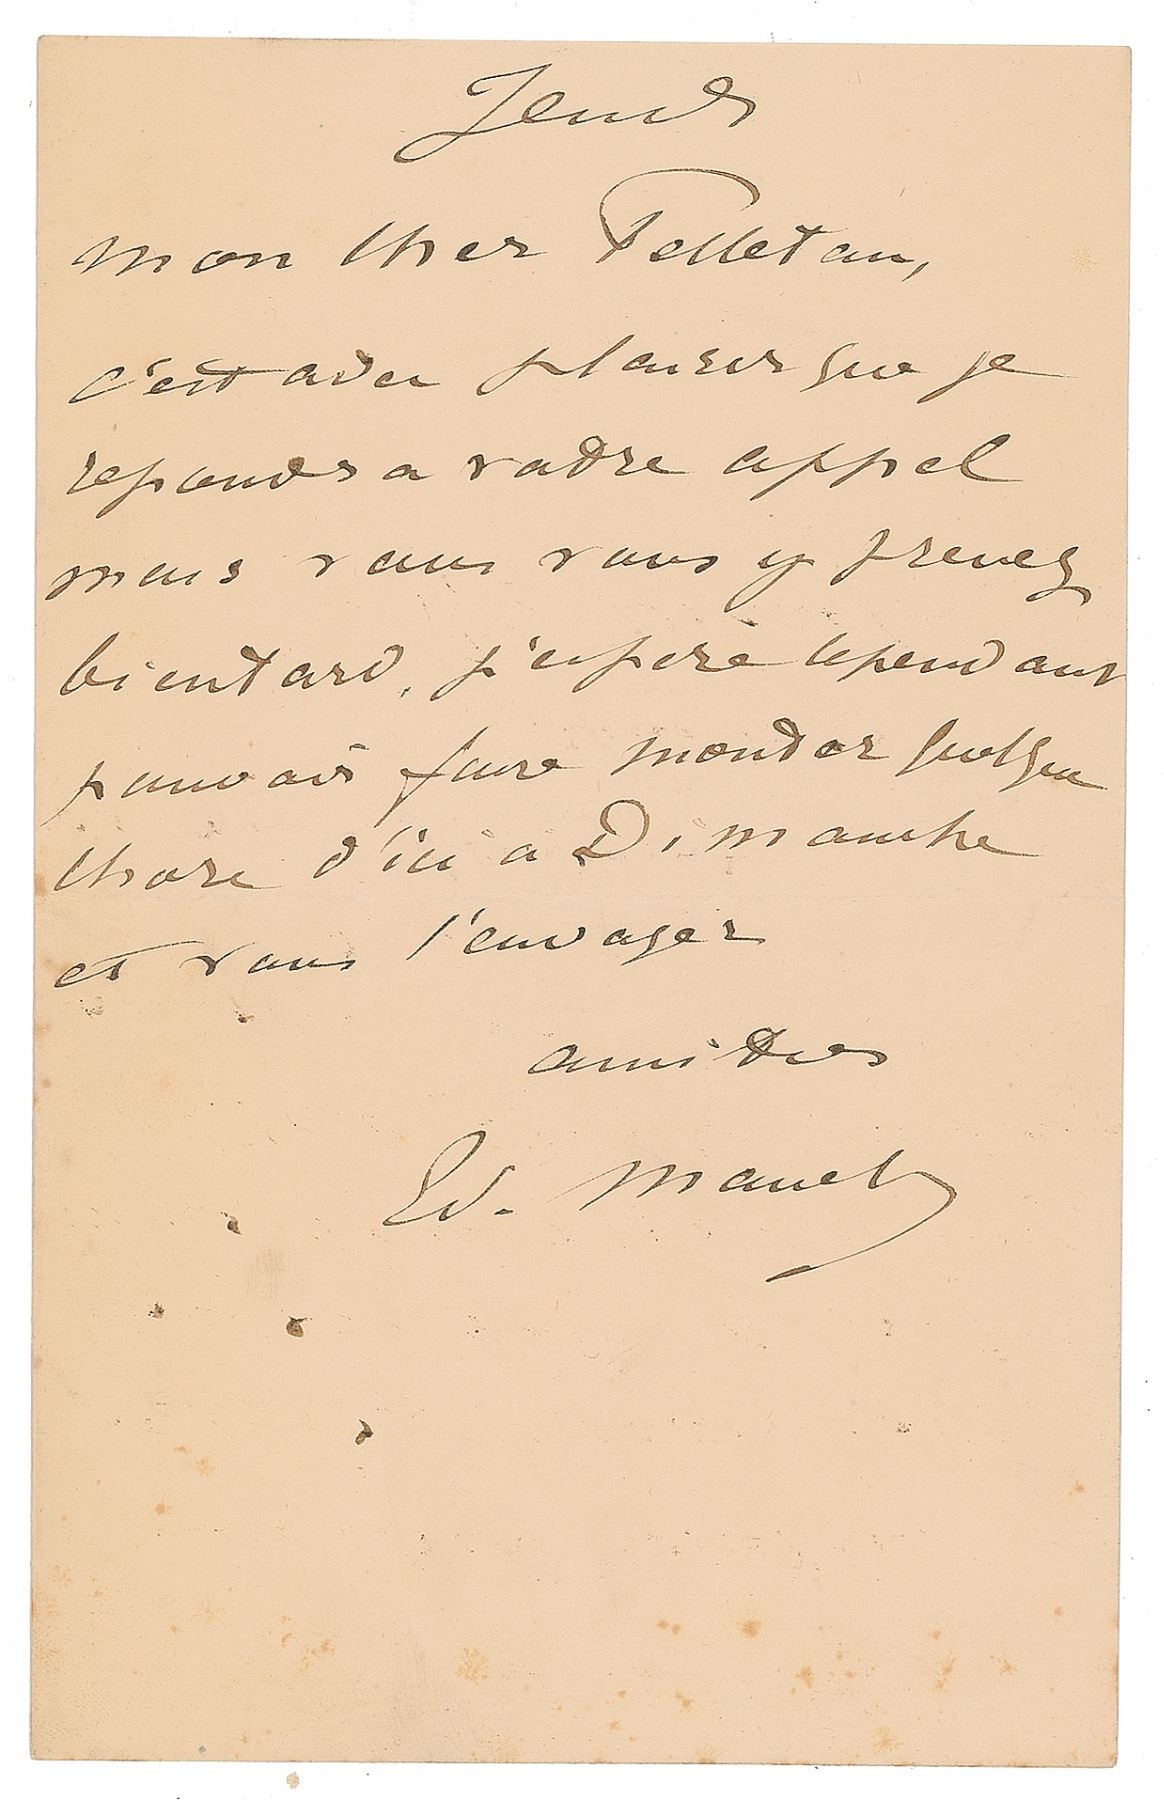 Jeudi
mon cher Pelletan,
c'est avec plaisir que je
reponds a votre appel
mais vous vous y prenez
bien tard, j'espere cependant
pouvoir faire monter quelque
chose d'ici a Dimanche
et vous l'envoyer
amities
Ed. Manet